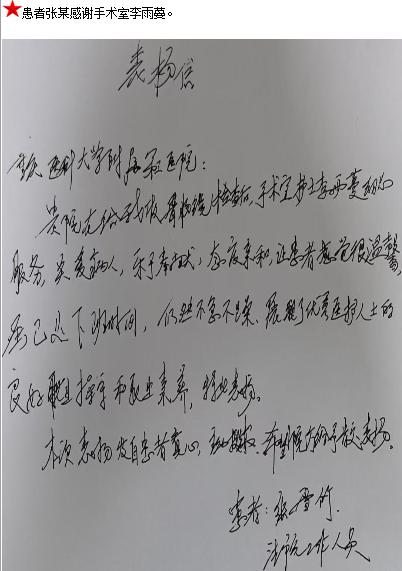 ★患者张某感谢手术室李雨蔓。
表扬信
重庆医科大学附属第三医院:
贵院在给我做 检查后,手术室护士李雨蔓
服务,关爱病人,乐于奉献,态度亲和,让患者感觉很温馨,
虽已是下班时间,仍然不急不躁,展现了优秀医护人士的
良好职业操守和职业素养,特此表扬。
本次表扬发自患者真心, 希望院方给予 表扬。
患者:张雪竹
法院工作人员